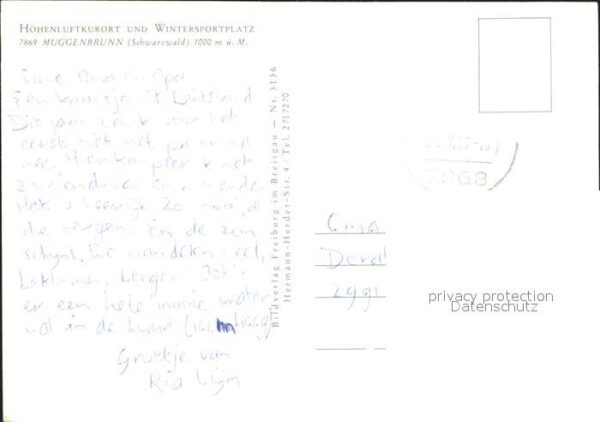 HÖHENLUFTKURORT UND WINTERSPORTPLATZ
7869 MUGGENBRUNN (Schwarzwald) 1000 m ü. M.
Lieve Oma en Opa
Een kaartje uit Duitsland
Dit jaar ben ik voor het
eerst niet met pa en ma
mee. Hier kampeer ik met
vriendinnen en vrienden
Het is heerlijk zo mooi,
die bergen. En de zon
schijnt. We wandelen veel,
bergen. Ook is
er een hele mooie water
val in de buurt
Groetjes van
Ria
Bildverlag Freiburg im Breisgau – Nr. 3136
Hermann-Herder-Str. 4 / Tel. 2717270
7868
Oma
2991
privacy protection
Datenschutz